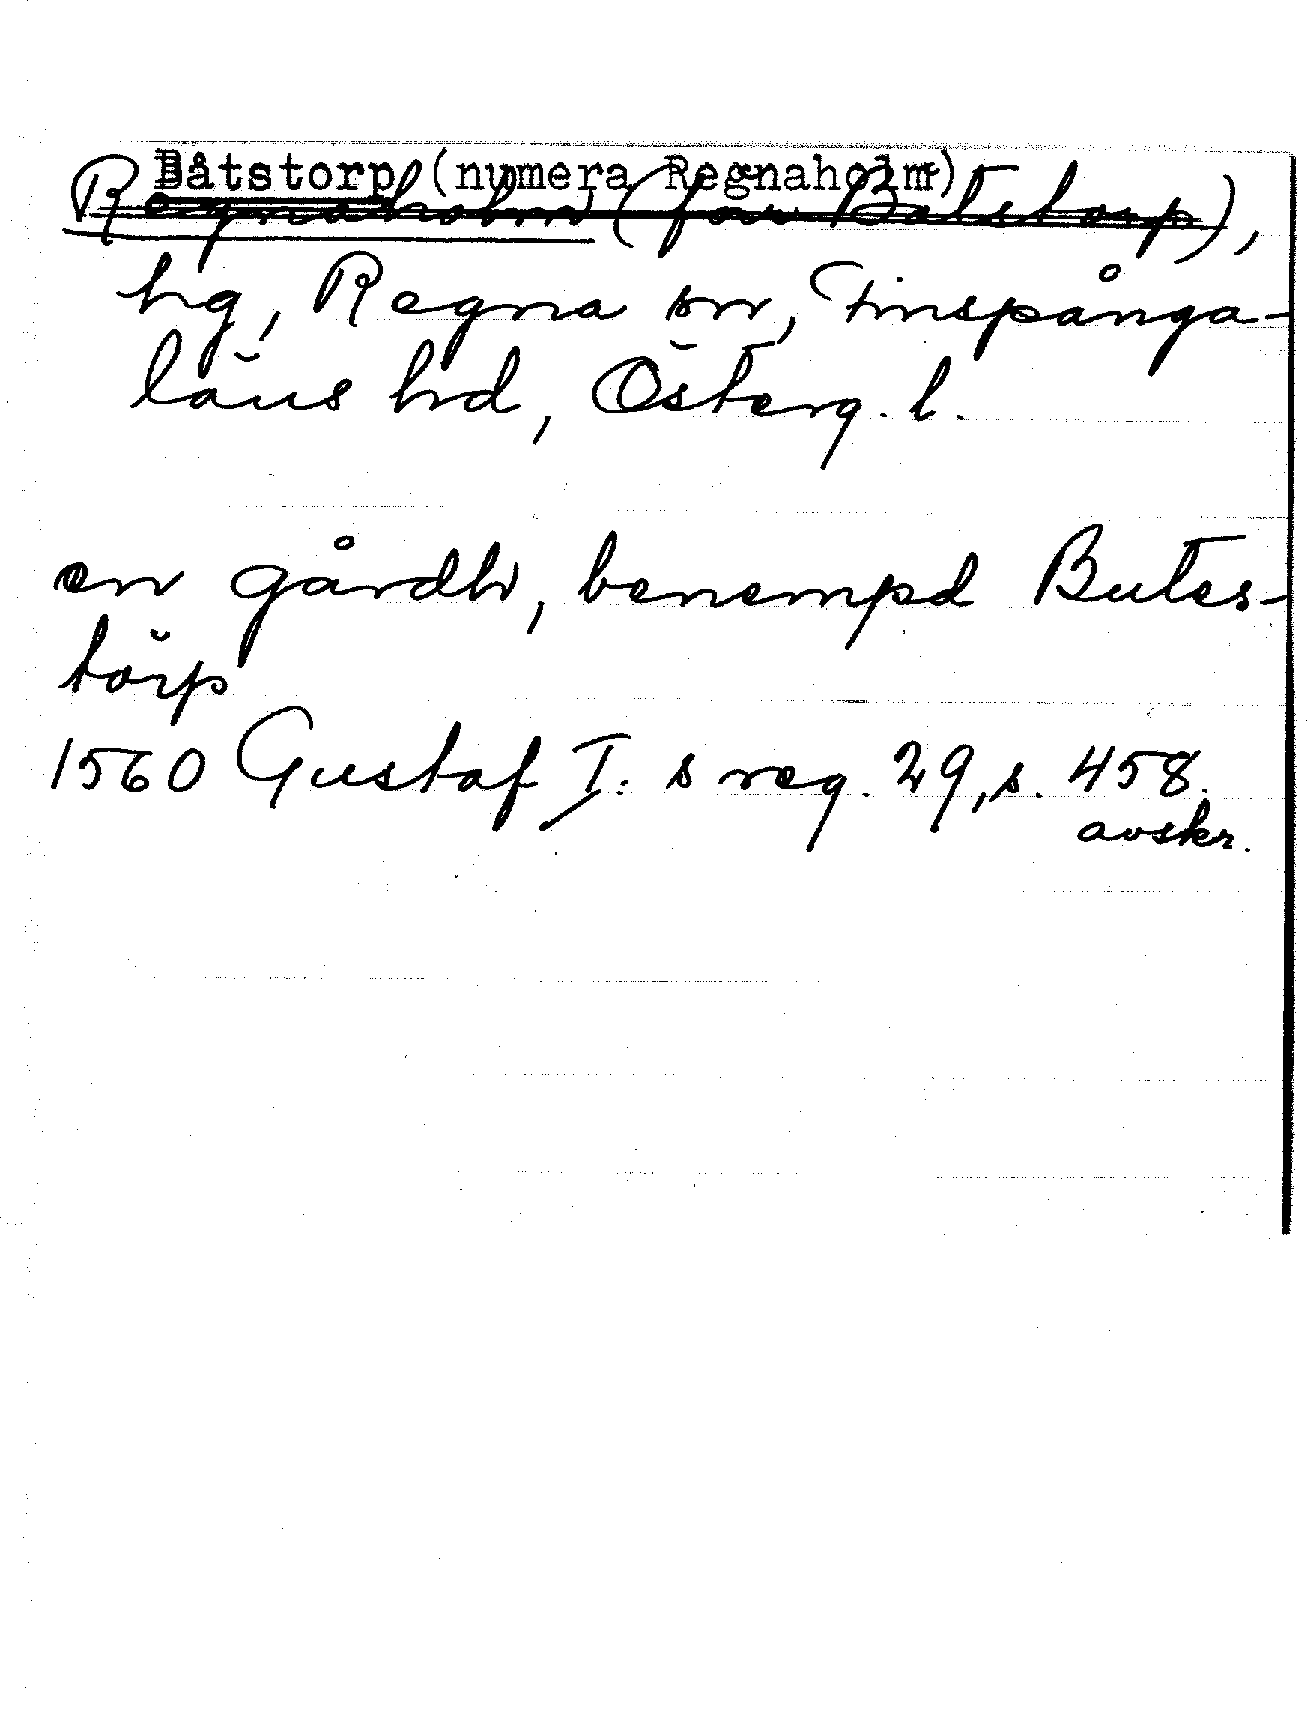 Båtstorp (numera Regnaholm)
Regnaholm (förr Båtstorp),
hg, Regna sn, Finspånga-
läns hd, Österg. l.
en gårdh, benempd Butes-
törp
1560 Gustaf I: s reg. 29, s. 458.
avskr.